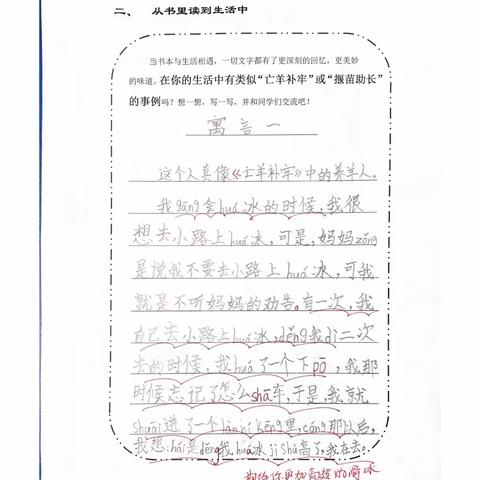 二、 从书里读到生活中
当书本与生活相遇，一切文字都有了更深刻的回忆，更美妙
的味道。在你的生活中有类似“亡羊补牢”或“揠苗助长”
的事例吗？想一想，写一写，并和同学们交流吧！
寓言一
这个人真像《亡羊补牢》中的养羊人。
我gāng会huá冰的时候，我很
想去小路上huá冰，可是，妈妈zǒng
是说我不要去小路上huá冰，可我
就是不听妈妈的劝告。有一次，我
自己去小路上huá冰，děng我dì二次
去的时候，我huá了一个下pō，我那
时候忘记了怎么shā车，于是，我就
shuāi进了一个làn ní kēng里，cóng那以后，
我想：hái是děng我huá冰jì shù高了，我在去。
期待你更加高超的滑冰